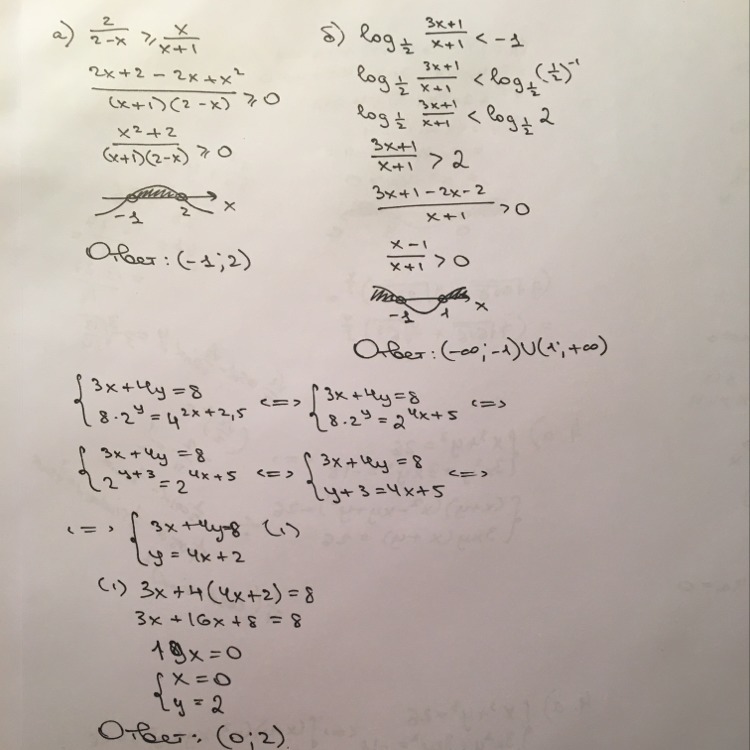 а) 2/(2-x) ≥ x/(x+1)
(2x+2-2x+x²)/((x+1)(2-x)) ≥ 0
(x²+2)/((x+1)(2-x)) ≥ 0
-1 2 x
Ответ: (-1;2)
б) log_{1/2} (3x+1)/(x+1) < -1
log_{1/2} (3x+1)/(x+1) < log_{1/2} (1/2)^{-1}
log_{1/2} (3x+1)/(x+1) < log_{1/2} 2
(3x+1)/(x+1) > 2
(3x+1-2x-2)/(x+1) > 0
(x-1)/(x+1) > 0
-1 1 x
Ответ: (-∞;-1)∪(1;+∞)
{ 3x+4y=8 <=> { 3x+4y=8 <=>
{ 8·2^y=4^{2x+2,5} { 8·2^y=2^{4x+5}
{ 3x+4y=8 <=> { 3x+4y=8 <=>
{ 2^{y+3}=2^{4x+5} { y+3=4x+5
<=> { 3x+4y=8 (1)
{ y=4x+2
(1) 3x+4(4x+2)=8
3x+16x+8=8
19x=0
{ x=0
{ y=2
Ответ: (0;2)